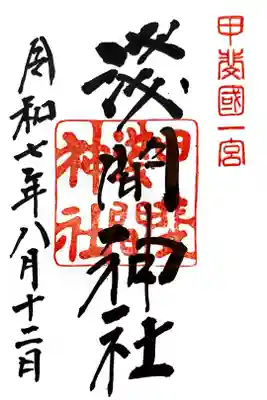 甲斐國一宮
浅間神社
甲斐
淺間
神社
令和七年八月十二日